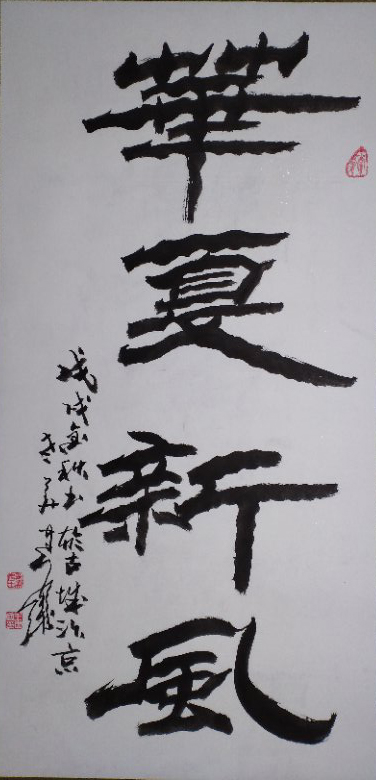 華夏新風
戊戌金秋书於古城汴京